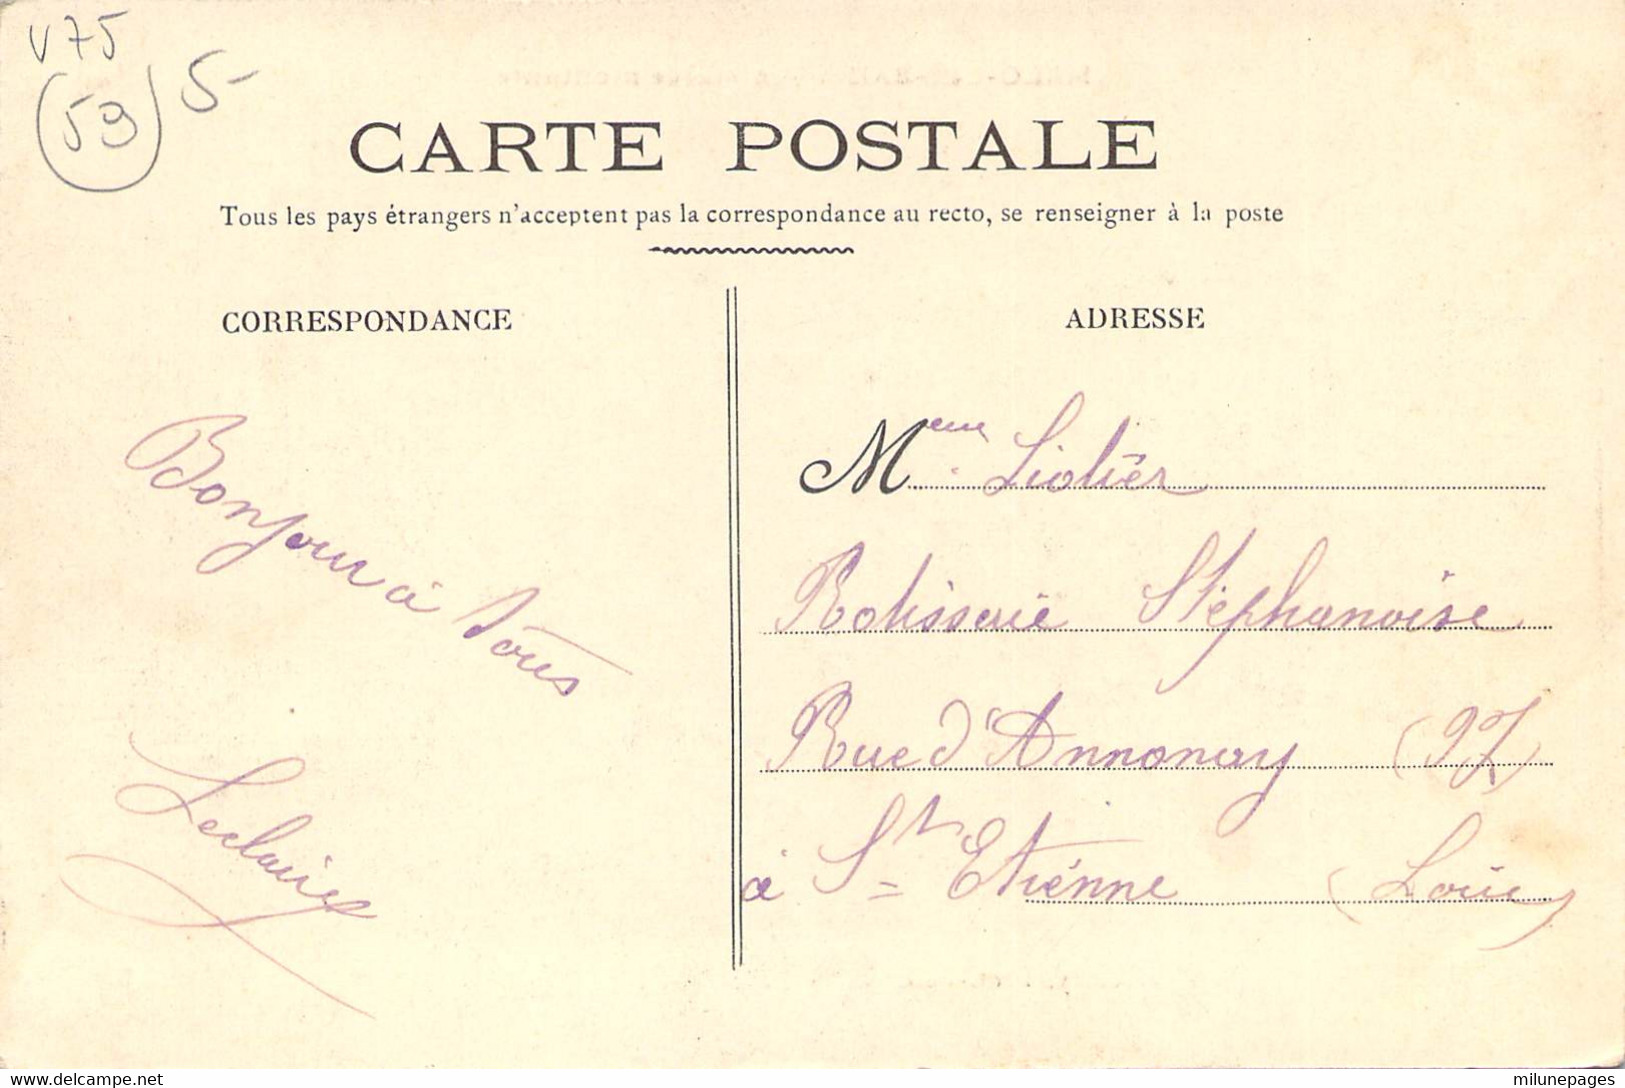 V75
59 5-
CARTE POSTALE
Tous les pays étrangers n'acceptent pas la correspondance au recto, se renseigner à la poste
CORRESPONDANCE
ADRESSE
Bonjour à
Tous
Leclaire
Mme Liotier
Rotisserie Stéphanoise
Rue d'Annonay (97)
à St Etiénne (Loire)
www.delcampe.net
milunepages